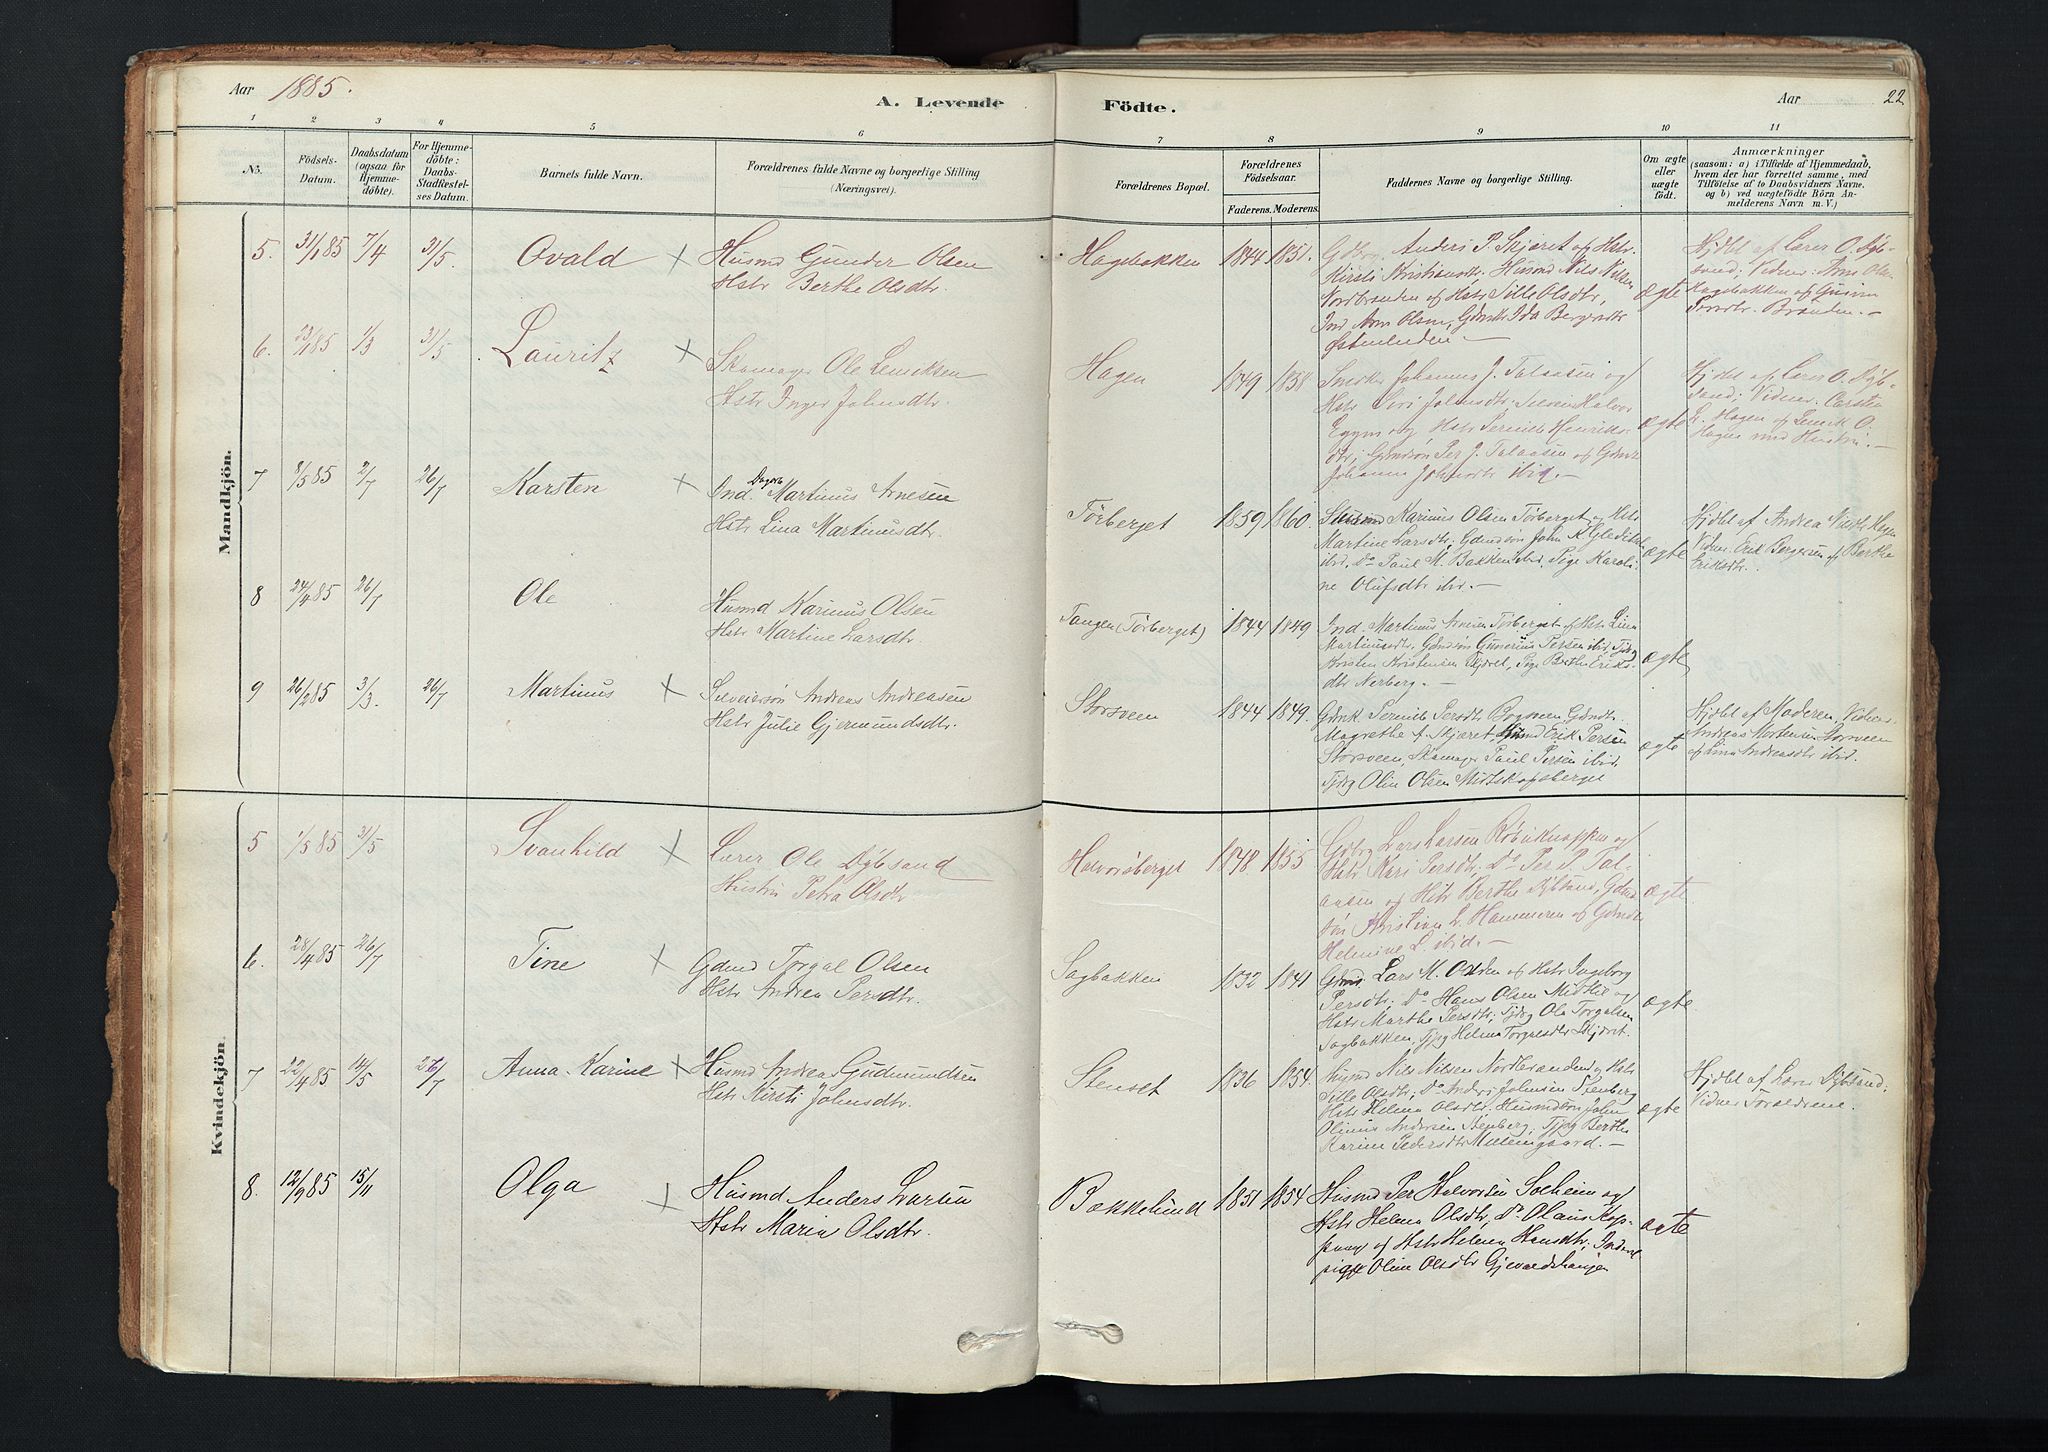 Aar 1885.
A. Levende Födte.
Aar 22
1 2 3 4 5 6 7 8 9 10 11
No.
Födsels-Datum.
Daabsdatum (ogsaa for Hjemmedöbte).
For Hjemmedöbte: Daabs-Stadfæstelses Datum.
Barnets fulde Navn.
Forældrenes fulde Navne og borgerlige Stilling
(Næringsvei).
Forældrenes Bopæl.
Forældrenes Födselsaar.
Faderens. Moderens.
Faddernes Navne og borgerlige Stilling.
Om ægte eller uægte födt.
Anmærkninger
(saasom: a) i Tilfælde af Hjemmedaab,
hvem der har forrettet samme, med
Tilföielse af to Daabsvidners Navne,
og b) ved uægtefödte Börn Anmelderens Navn m. V.)
Mandkjön.
5. 31/1 85 7/4 31/5. Ovald × Husmd Gunder Olsen
Hstr Berthe Olsdtr.
Hagebakken 1844 1851.
Anders P. Skjæret og Hstr.
Kirsti Kristiansdtr, Husmd Nils Nilsen
Nordbranden og Hstr Sille Olsdtr,
Ind. Arne Olsen, Gdmk Ida Bergersdtr
ægte
Hjdbt af Lærer O. Dyb-
sand; Vidner: Arne Olsen
Hagebakken og
6. 23/1 85 1/3 31/5 Lauritz × Skomager Ole Lenriksen
Hstr Inger Johnsdtr.
Hagen 1849 1858
Johannes J. Talaasen og
Hstr Siri Johnsdtr. Selveier Halvor
og Hstr Pernille Henriks-
dtr; Gdmdsøn Per J. Talaasen og
Johanne Johnsdtr ibid. —
ægte
Hjdbt af Lærer O. Dyb-
sand; Vidner: Carsten
L. Hagen og Lenrik O.
Hagen med Hustru. —
7 8/5 85 2/7 26/7 Karsten × Ind. Dagarb. Martinus Arnesen
Hstr Lina Martinusdtr.
Törberget 1859 1860.
Husmd Karinus Olsen Törberget og Hstr
Martine Larsdtr; Gdmdsøn John K.
ibid, Do Paul M. Bakken ibid. Pige Karoli-
ne Olufsdtr ibid. —
ægte
Hjdbt af Andrea Hagen
Vidner: Erik Bergersen og Berthe
Eriksdtr.
8 24/4 85 26/7 Ole Husmd Karinus Olsen
Hstr Martine Larsdtr.
Tangen (Törberget) 1844 1849
Ind. Martinus Arnesen Törberget og Hstr Lina
Martinusdtr. Gdmdsøn Gunerius Persen ibid. Tjdrg
Karsten Kristensen Skjæret, Pige Berthe Eriks-
dtr Nerberg. —
ægte
9 26/2 85 3/3. 26/7 Martinus × Selveiersøn Andreas Andreasen
Hstr Julie Gjermundsdtr.
Storsveen 1844 1849.
Gdmk Pernille Persdtr
Magrethe A. Skjæret, Husmd Erik Persen
Storsveen, Skomager Paul Persen ibid.
Tjdrg Olin Olsen Midtskogsberget
ægte
Hjdbt af Moderen, Vidner:
Andreas Mortensen Storsveen
og Lina Andreasdtr ibid.
Kvindekjön.
5 1/5 85 31/5 Svanhild × Lærer Ole Dybsand
Hustru Petra Olsdtr
Halvorsberget 1848. 1855
Lars Larsen og
Hstr Kari Persdtr; Do Per P. Tal-
aasen og Hstr Berthe Dybsand, Gdmd
søn Kristian L. Hammeren og Gdmdtr
Helmine L. ibid. —
ægte
6. 28/4 85 26/7 Tine × Gdmd Torgal Olsen
Hstr Andrea Persdtr.
Sagbakken 1832 1841
Gdmd. Lars M. og Hstr Ingeborg
Persdtr; Do Hans Olsen og
Hstr Marthe Persdtr; Tjdrg Ole Torgalsen
Sagbakken, Tjpg Helene Skjæret.
ægte
7 22/4 85 14/5 26/7 Anna Karine × Husmd Andreas Gudmundsen
Hstr Kirsti Johnsdtr.
Stenset 1836 1854.
Husmd Nils Nilsen Nordbranden og Hstr
Sille Olsdtr; Do Anders Johnsen Stenberg
Hstr Helene Olsdtr. Husmdsøn John
Olinus Andersen Stenberg; Tjpg Berthe
Karine Pedersdtr —
ægte
Hjdbt af Lærer Dybsand;
Vidner Forældrene.
8. 12/9 85 15/11 Olga × Husmd Anders Larsen
Hstr Maren Olsdtr.
Bækkelund 1851 1854
Husmd Per Halvorsen Solheim og
Hstr Helene Olsdtr, Do Olaus Kop-
pang og Hstr Helene Hansdtr, Inderst
pige Oline Olsdtr Gjevardshaugen
ægte